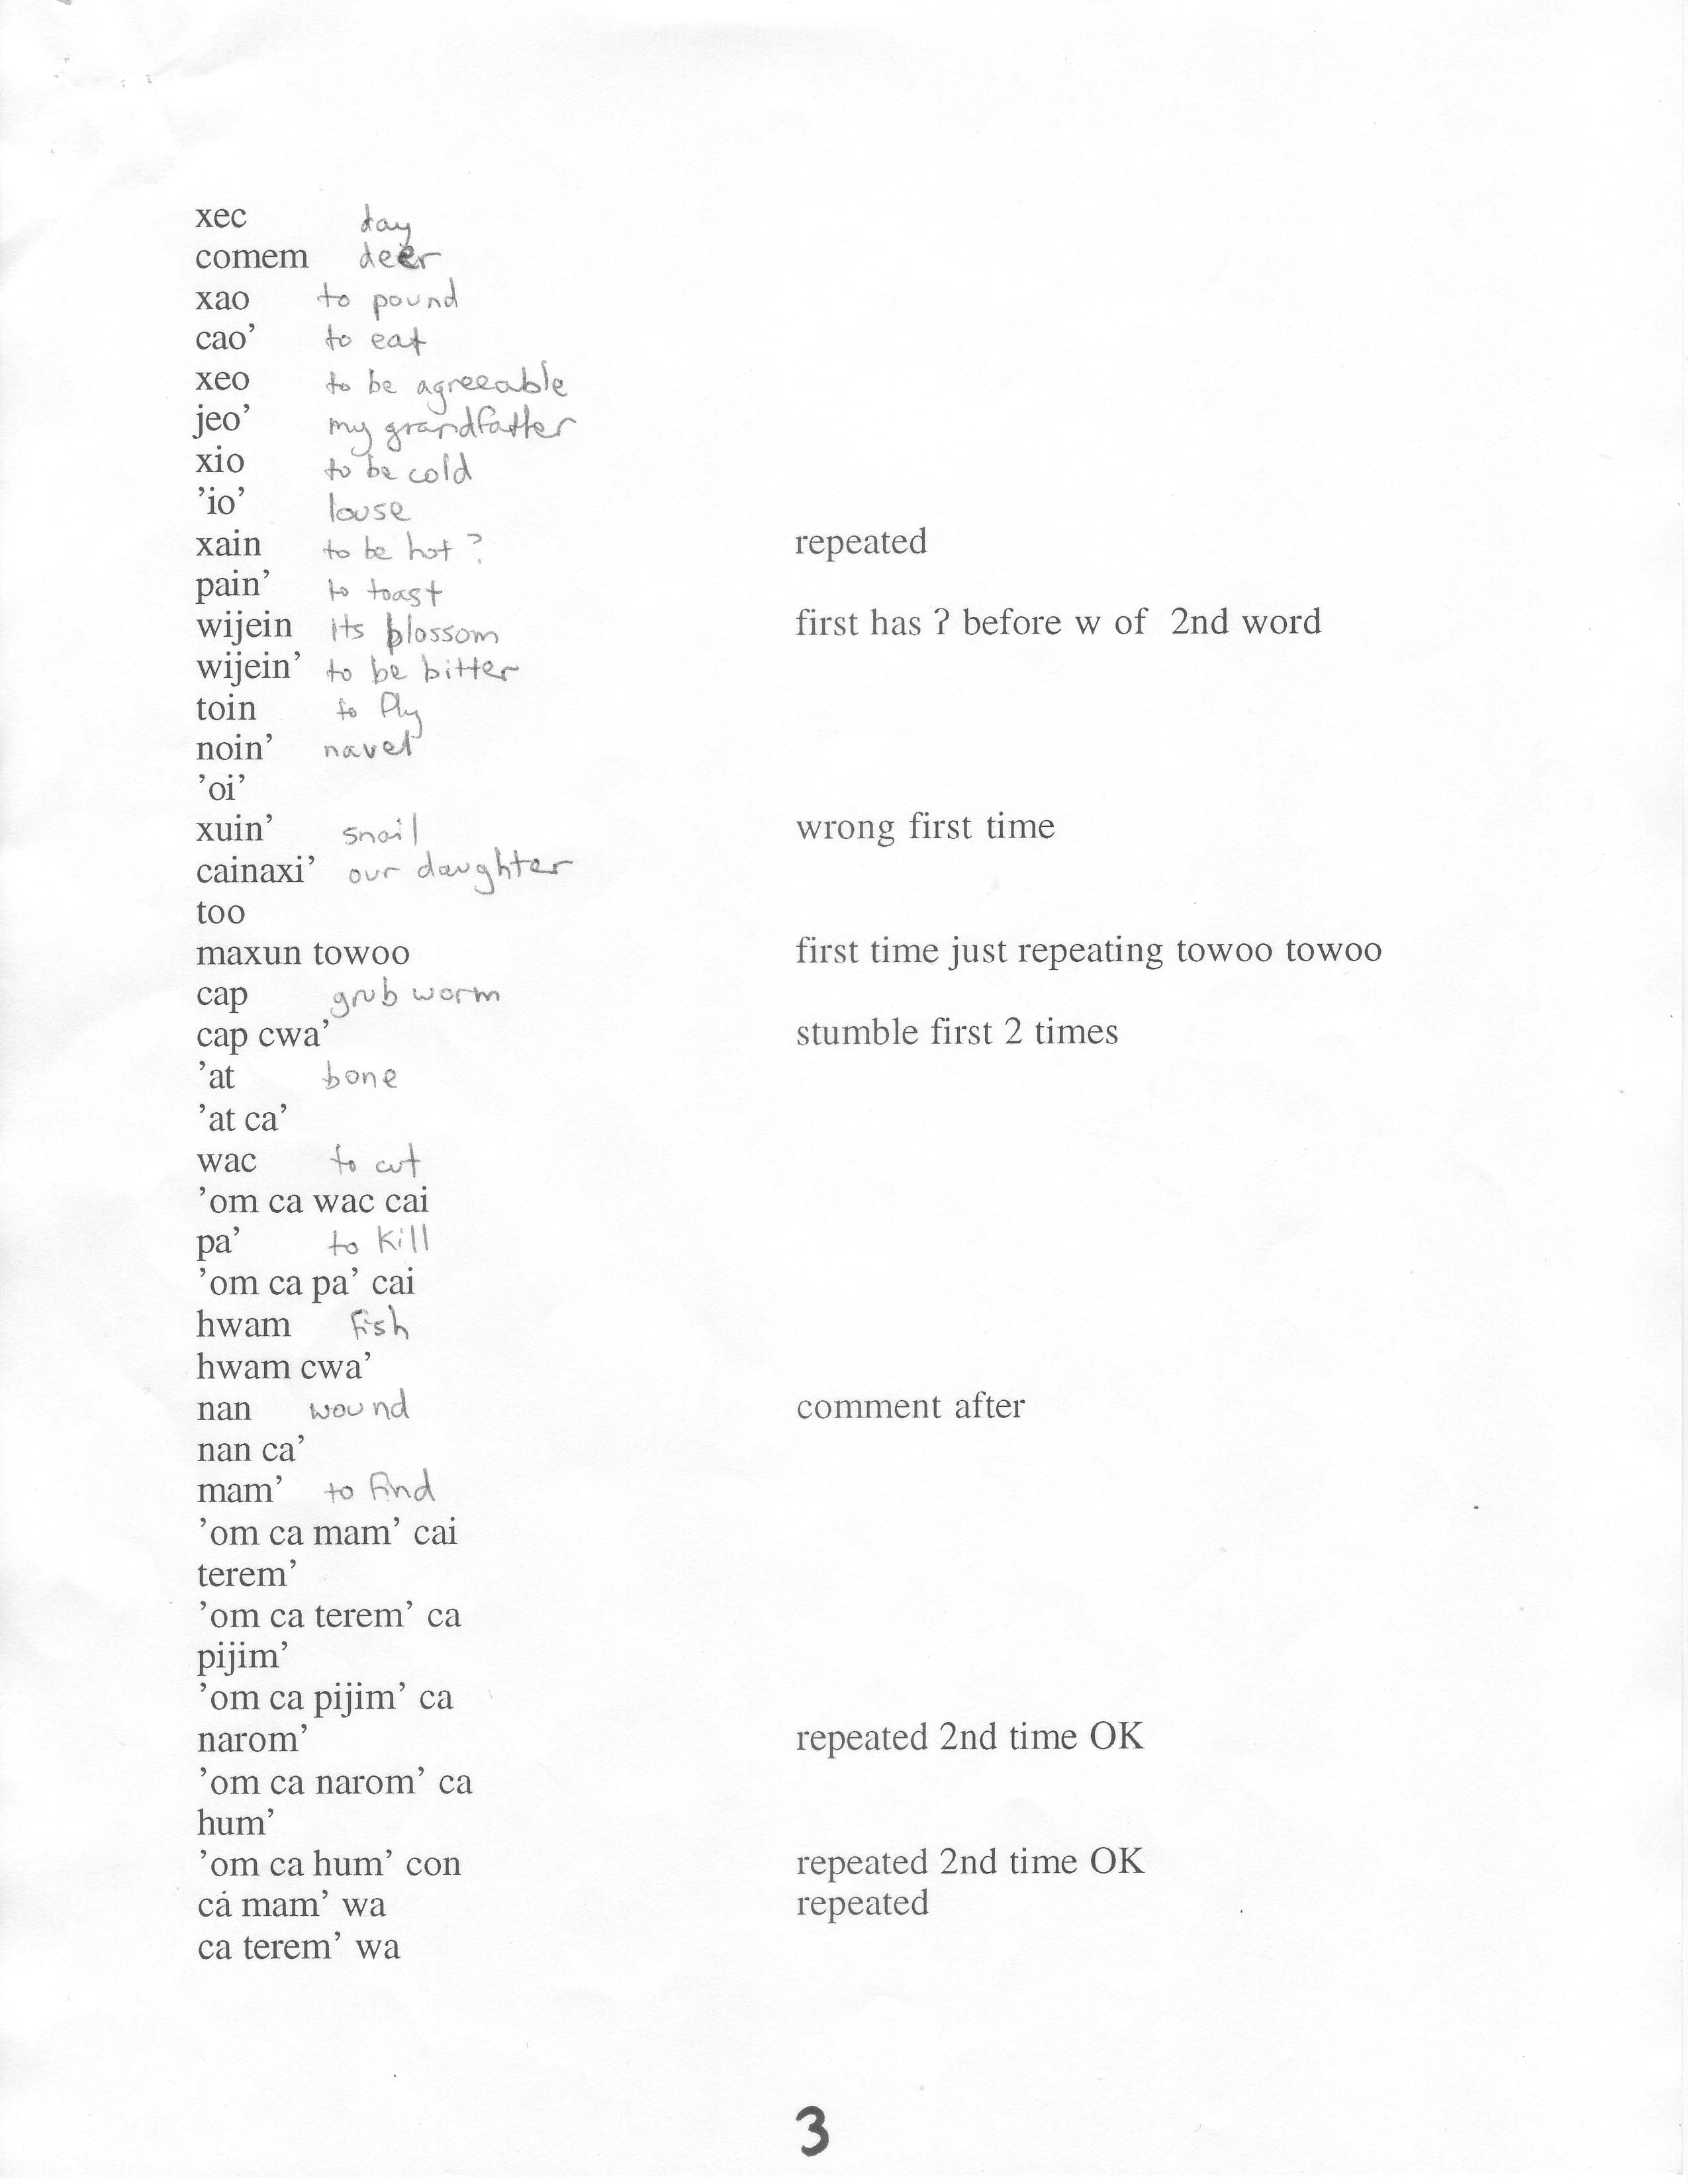 xec day
comem deer
xao to pound
cao’ to eat
xeo to be agreeable
jeo’ my grandfather
xio to be cold
’io’ louse
xain to be hot ? repeated
pain’ to toast
wijein its blossom first has ʔ before w of 2nd word
wijein’ to be bitter
toin to fly
noin’ navel
’oi’
xuin’ snail wrong first time
cainaxi’ our daughter
too
maxun towoo first time just repeating towoo towoo
cap grub worm
cap cwa’ stumble first 2 times
’at bone
’at ca’
wac to cut
’om ca wac cai
pa’ to kill
’om ca pa’ cai
hwam fish
hwam cwa’
nan wound comment after
nan ca’
mam’ to find
’om ca mam’ cai
terem’
’om ca terem’ ca
pijim’
’om ca pijim’ ca
narom’ repeated 2nd time OK
’om ca narom’ ca
hum’
’om ca hum’ con repeated 2nd time OK
ca mam’ wa repeated
ca terem’ wa
3